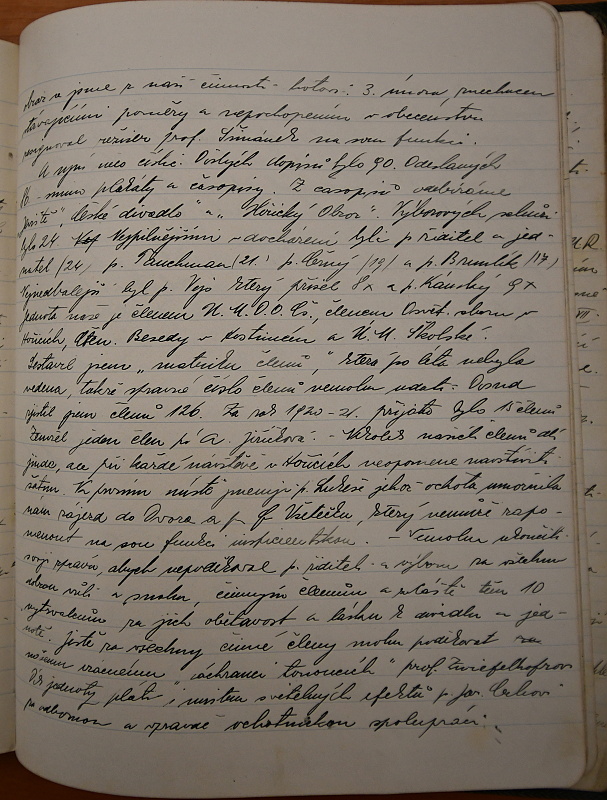 obraz a jsme z naší činnosti hotovi: 3. února, znechucen
stávajícími poměry a nepochopením v obecenstvu
resignoval režisér prof. Šimánek na svou funkci.
A nyní něco číslic. Došlých dopisů bylo 90. Odeslaných
16. - mimo plakáty a časopisy. Z časopisů odbíráme
"české divadlo" a "Hořický Obzor". Výborových schůzí
bylo 24 Nejpilnějšími v docházení byli p. řiditel a jed-
natel (24), p. (21.) p. Černý (19) a p. Brumlík (17)
Nejnedbalejší byl p. Vojš který přišel 8x a p. Kauský 9x
Jednota naše je členem Ú. M. D. O. Čs., členem Osvět. sboru v
Hořicích, Čten. Besedy v a Ú. M. Školské.
Sestavil jsem "matriku členů", která po léta nebyla
vedena, takže správné číslo členů nemohu udati. Dosud
zjistil jsem členů 126. Za rok 1920-21. přijato bylo 15 členů
Zemřel jeden člen pí A. Jiříková. - Několik našich členů dlí
jinde, ale při každé návštěvě v Hořicích neopomene navštíviti
šatnu. Na prvním místě jmenuji p. Lukeše jehož ochota umožnila
nám zájezd do Dvora a p. Vsetečku, který nemůže zapo-
menout na svou funkci inspicientskou. - Nemohu ukončiti
svoji zprávu, abych nepoděkoval p. řiditeli a výboru za všechnu
dobrou vůli a snahu, činným členům a zvláště těm 10
vytrvalcům za jich obětavost a lásku k divadlu a jed-
notě. Jistě za všechny činné členy mohu poděkovat za
našemu vzácnému "záchranci tonoucích" prof. Zwiefelhofrovi
jednoty platí i mistru světelných efektů p. Jar.
za odbornou a vpravdě ochotnickou spolupráci.